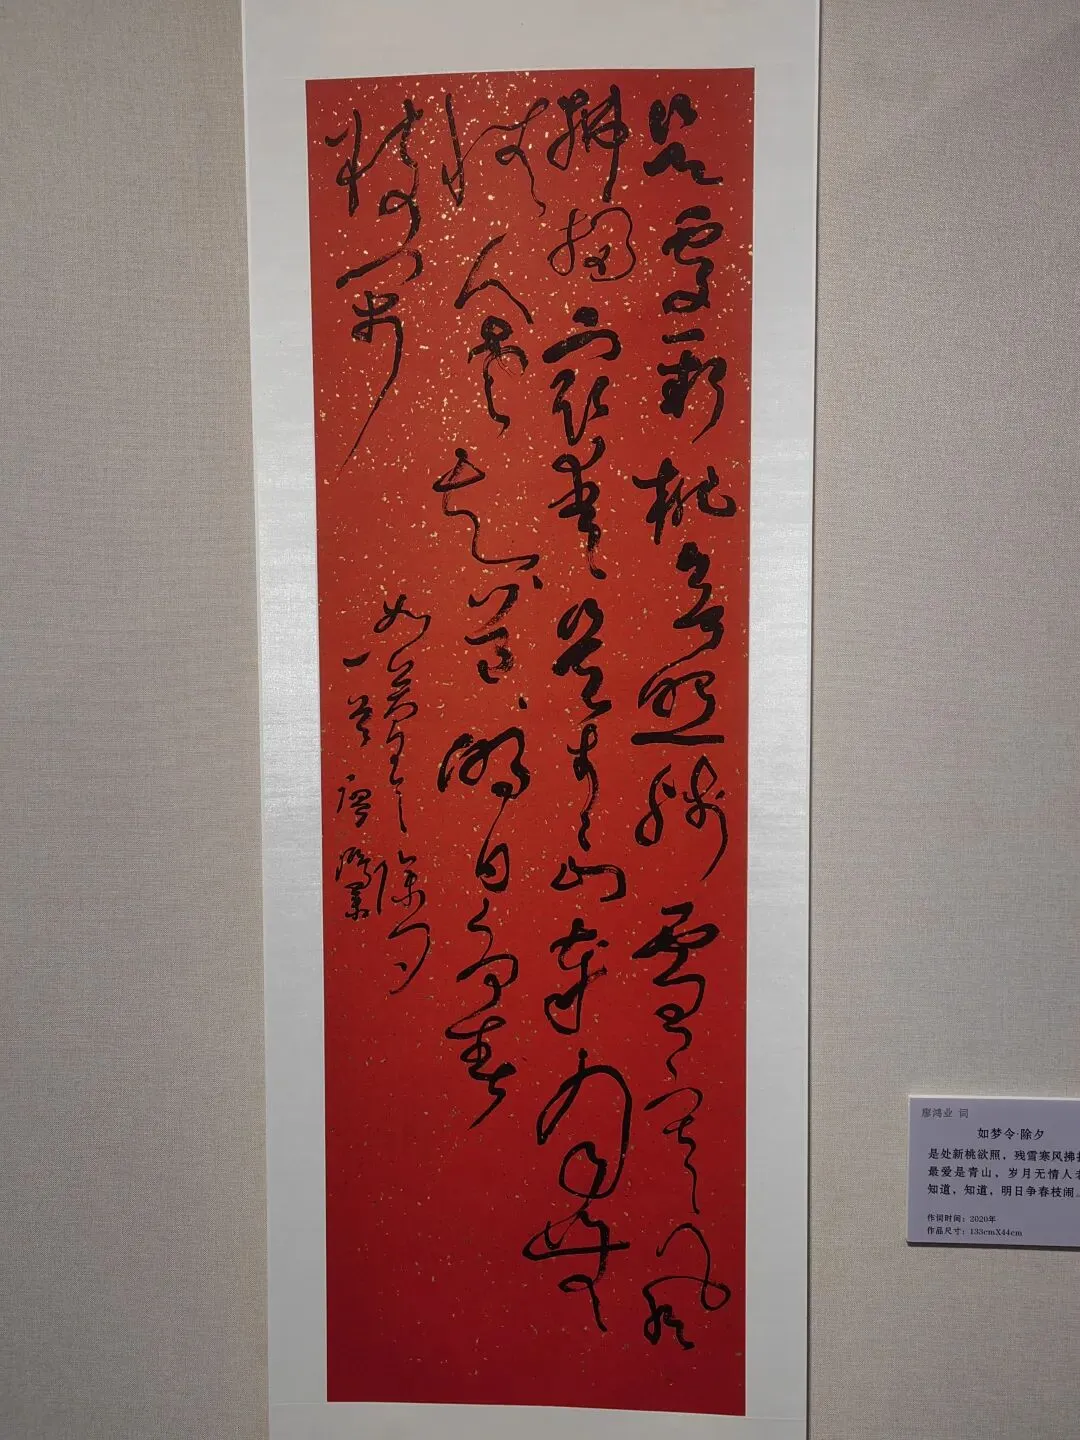 是處新桃欲照殘雪寒风
拂掃最愛是青山歲月無
情人老知道〻明日争春
枝闹
如夢令除夕
一首 廖鴻業
廖鸿业 词
如梦令·除夕
是处新桃欲照，残雪寒风拂
最爱是青山，岁月无情人老
知道，知道，明日争春枝闹。
作词时间：2020年
作品尺寸：133cmX44cm